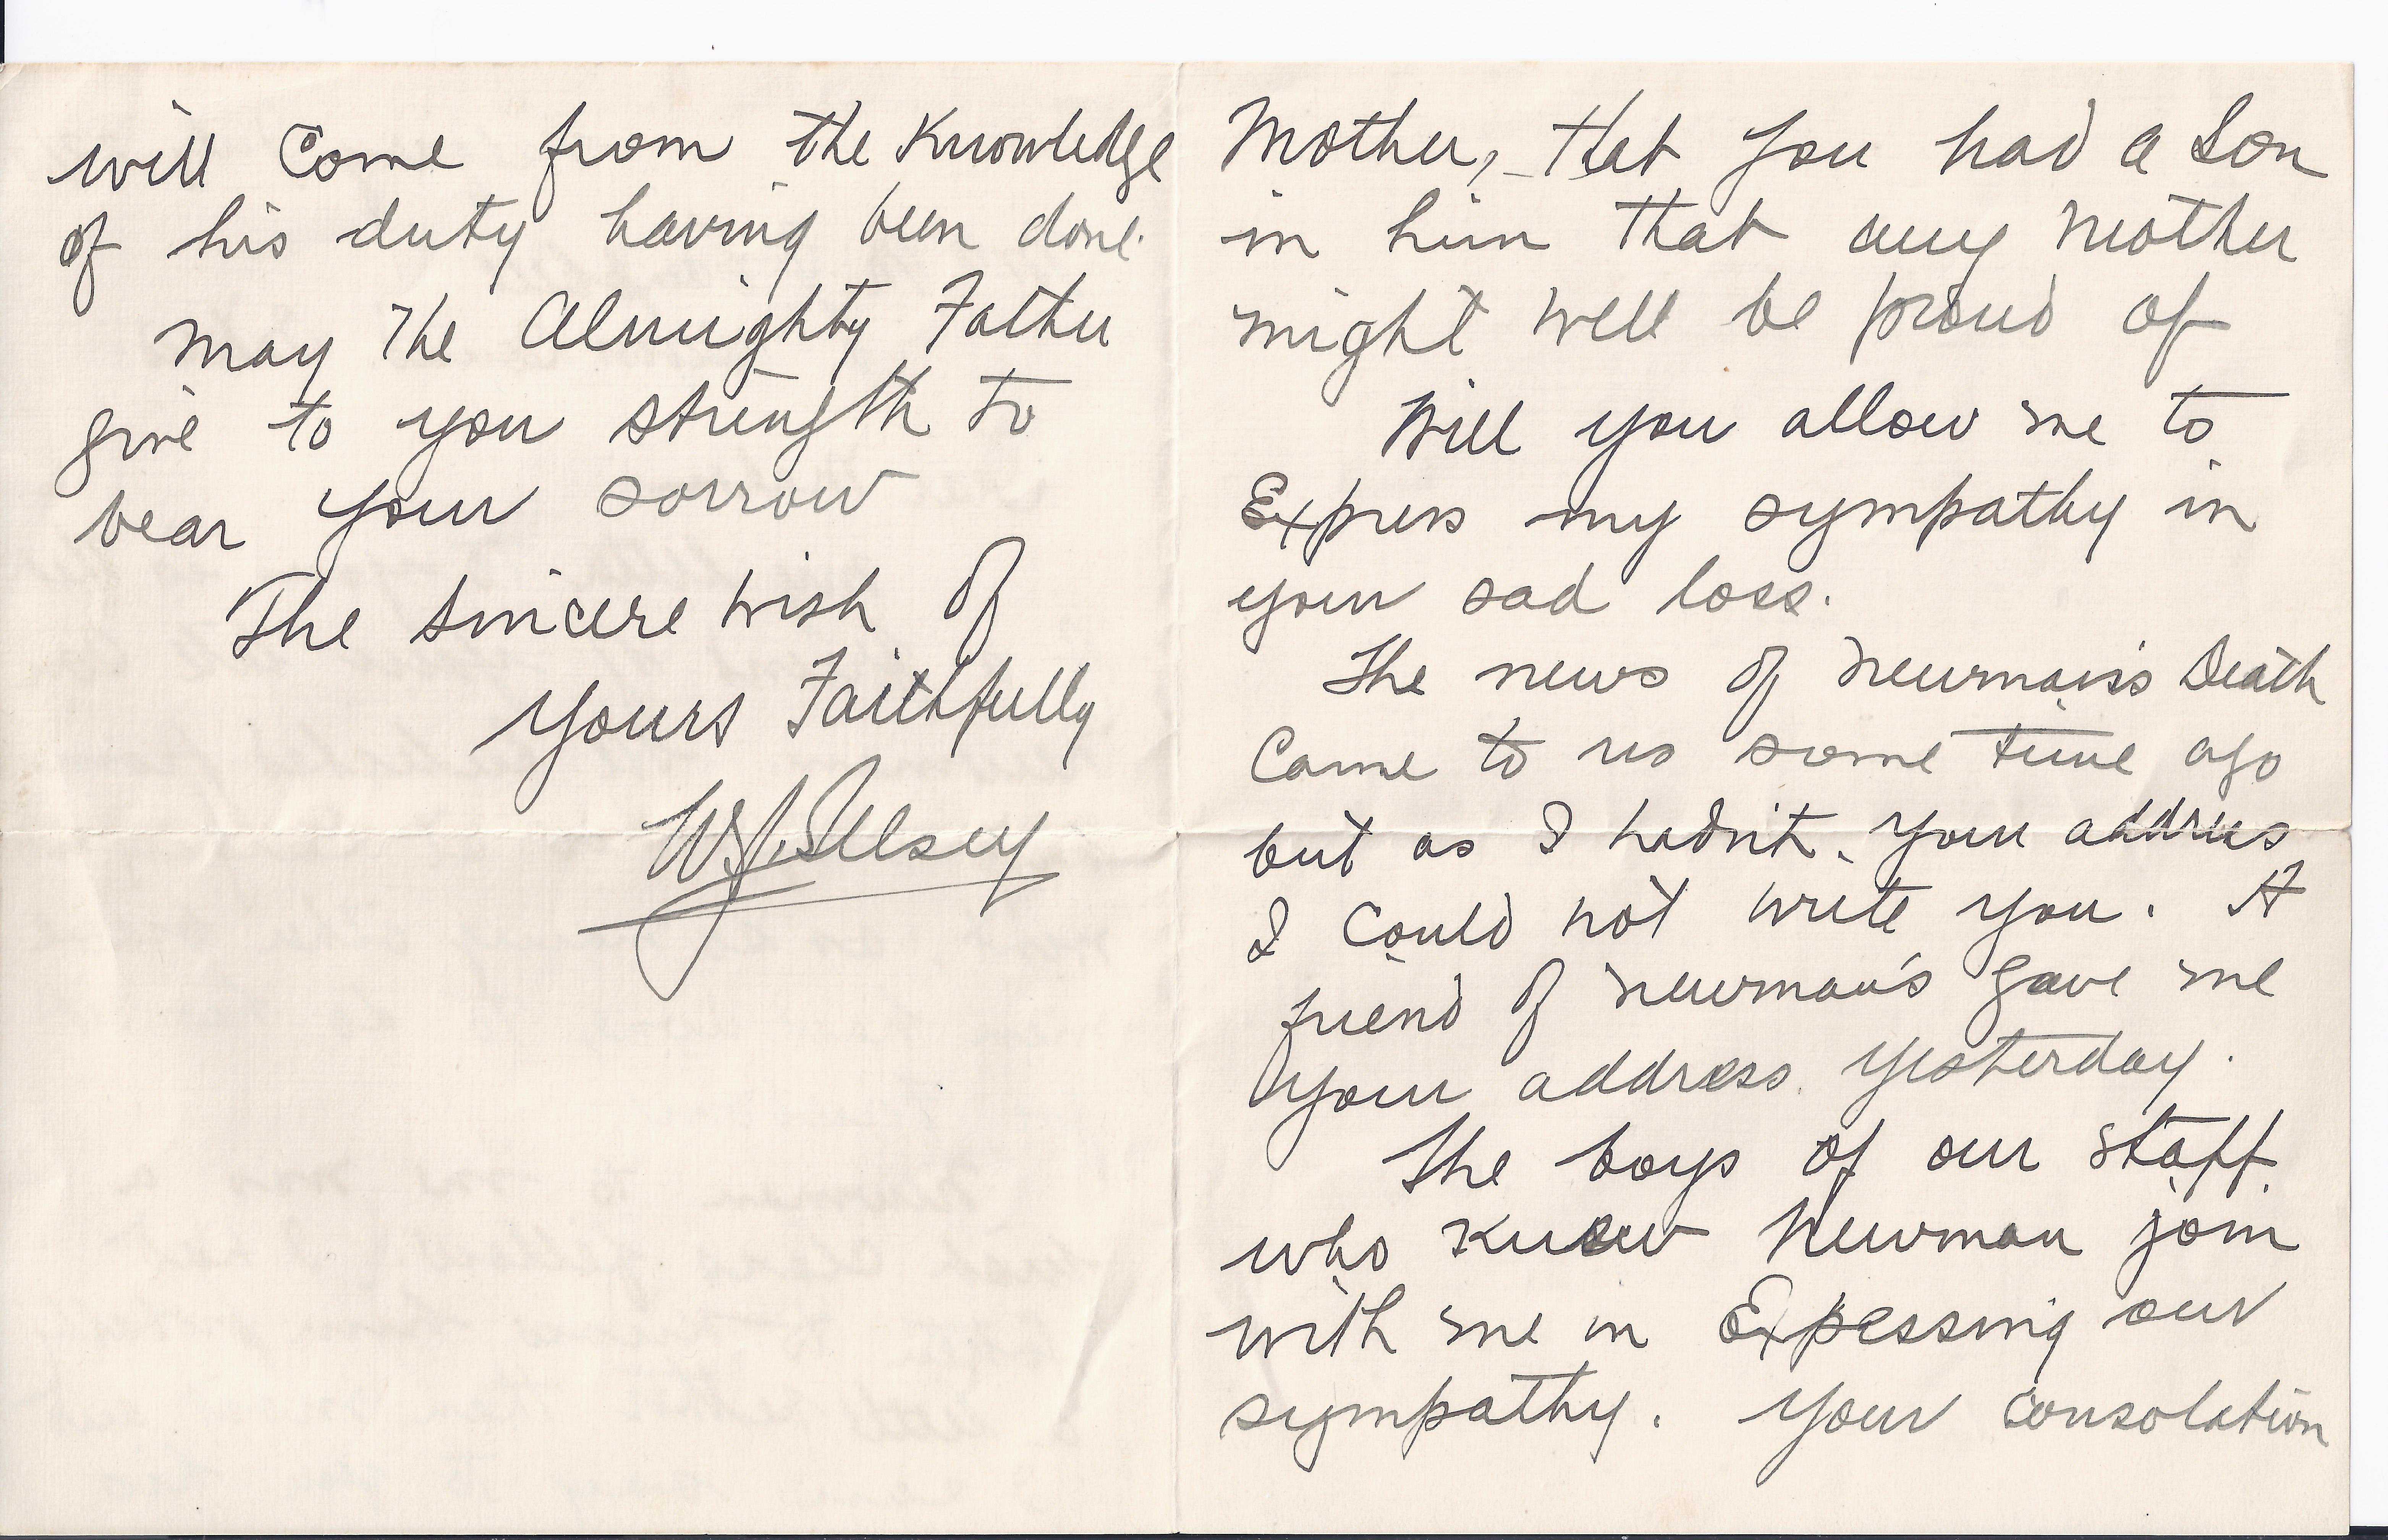 Mother, - that you had a Son
in him that any Mother
might well be proud of
Will you allow me to
Express my sympathy in
your sad loss.
The news of Newman's Death
Came to us some time ago
but as I hadn't your address
I could not write you. A
friend of Newman's gave me
your address yesterday.
The boys of our staff
who knew Newman join
with me in Expessing our
sympathy. Your consolation
will Come from the Knowledge
of his duty having been done.
May the Almighty Father
give to you strength to
bear your sorrow
The sincere wish of
Yours Faithfully